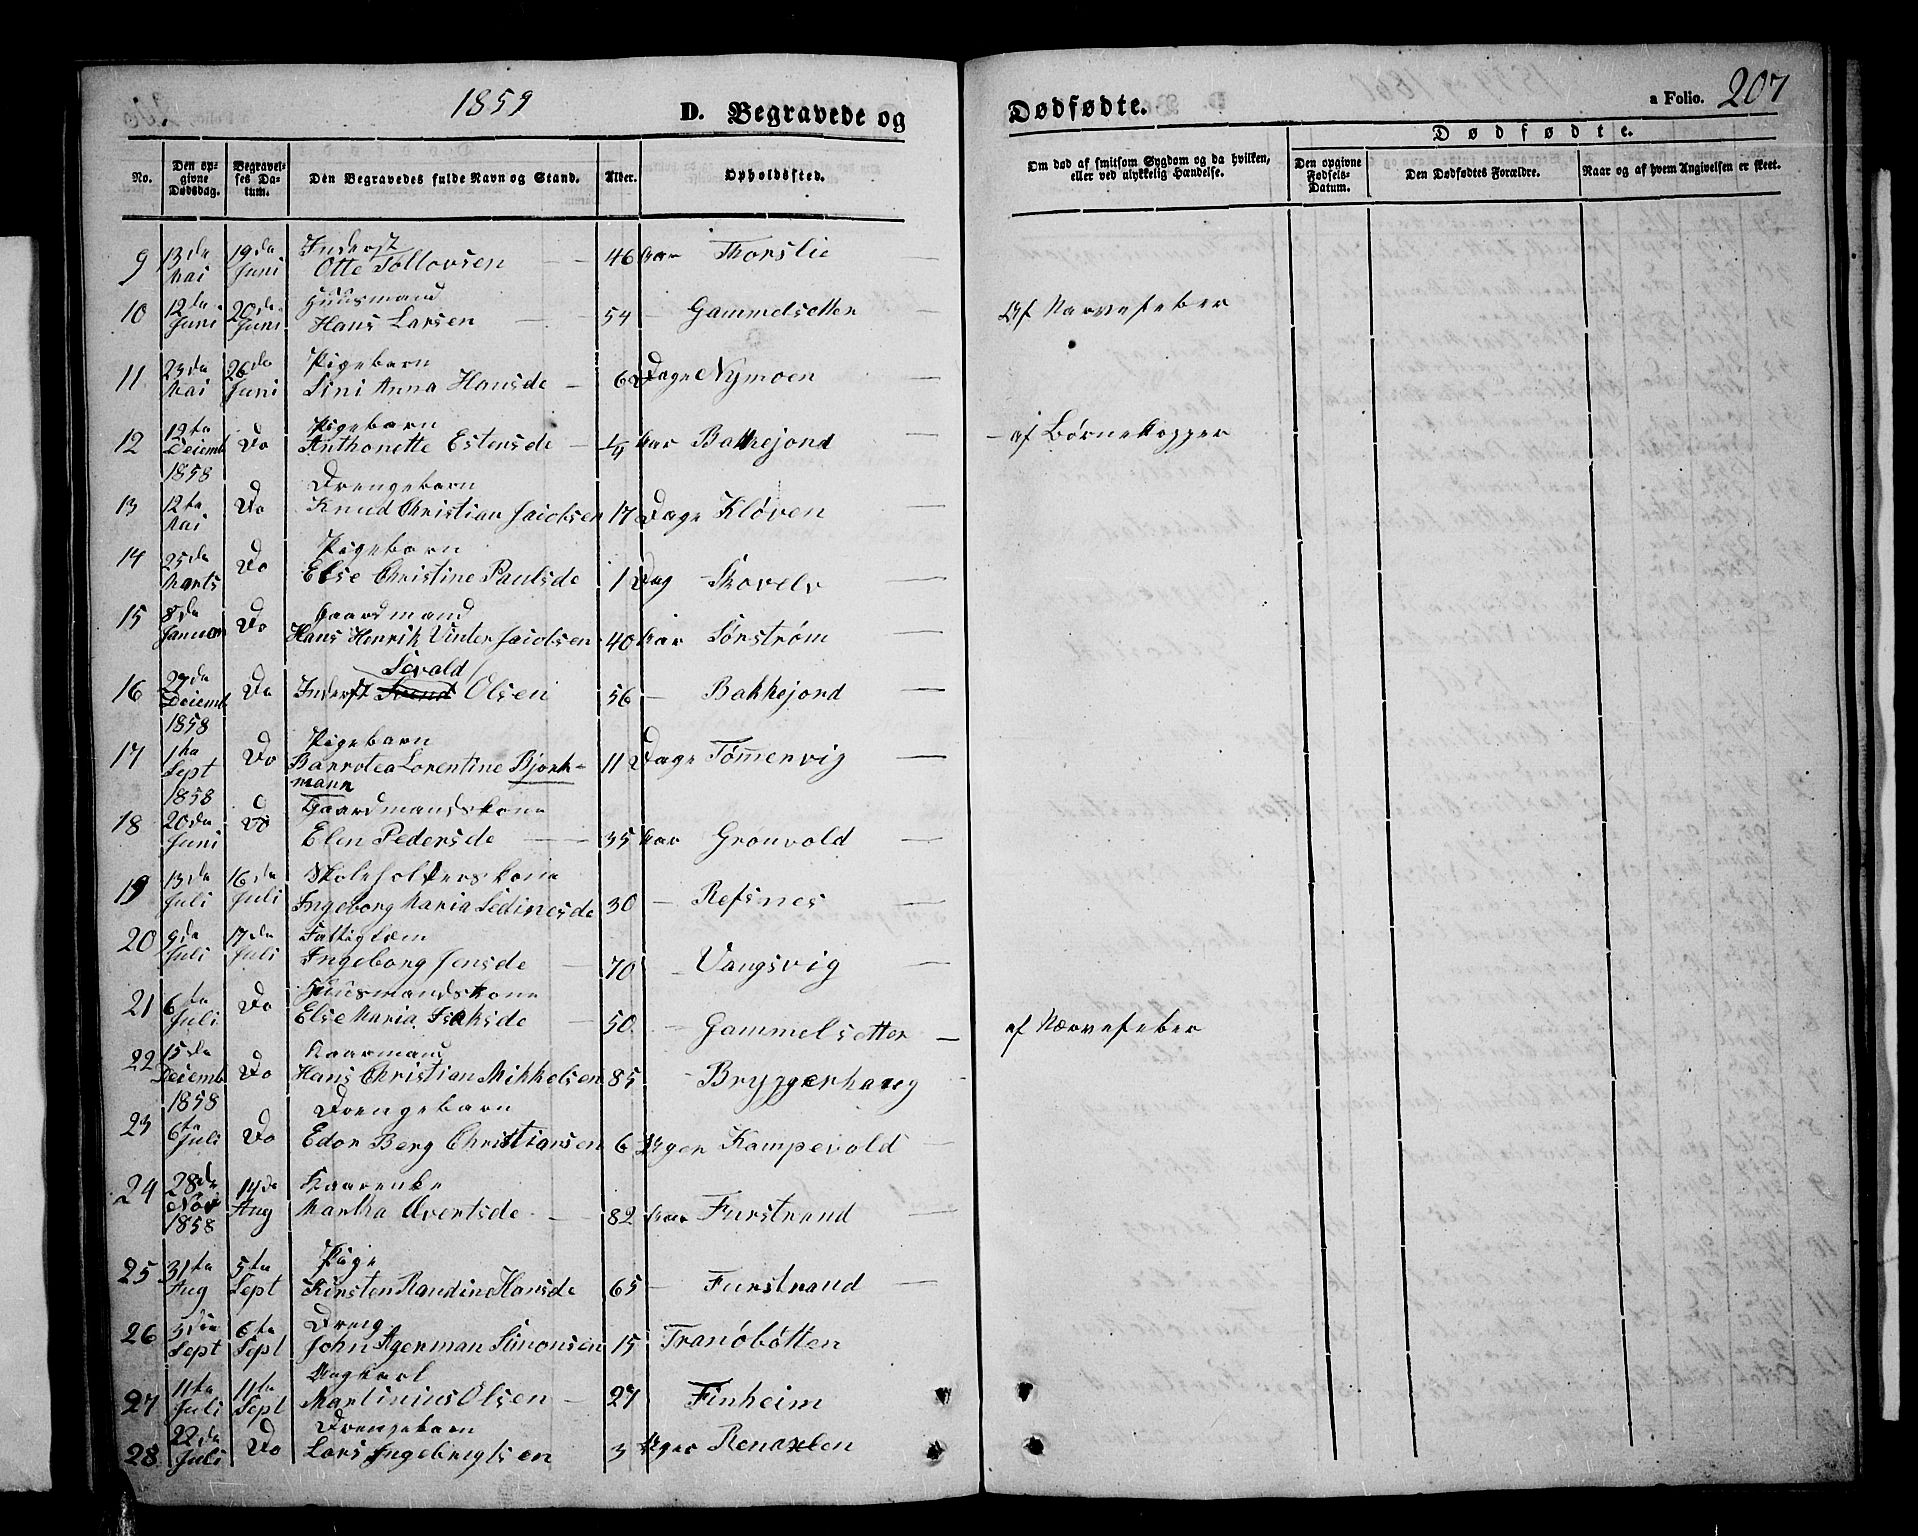 1859
D. Begravede og
Dødfødte.
a Folio. 207
No.
Den opgivne Dødsdag.
Begravelses Datum.
Den Begravedes fulde Navn og Stand.
Alder.
Opholdssted.
Om død af smitsom Sygdom og da hvilken, eller ved ulykkelig Hændelse.
Dødfødte.
Den opgivne Fødsels-Datum.
Den Dødfødtes Forældre.
Naar og af hvem Angivelsen er skeet.
9 13de Mai 19de Juni Inderst
Otte Tollovsen 46 Aar Thorslie
10 12te Juni 20de Juni Huusmand
Hans Larsen 54 – Gammelsetter Af Nervefeber
11 23de Mai 26de Juni Pigebarn
Lini Anna Hansde 6 Dage Nymoen
12 12te Decemb 1858 Do Pigebarn
Anthonette Estensde 4 Aar Bakkejord – af Børnekopper
13 12te Mai Do Drengebarn
Knud Christian Jacobsen 17 Dage Kløven
14 25de Marts Do Pigebarn
Else Christine Paulsde 1 Dag Skovelv
15 8de Januar Do Gaardmand
Hans Henrik Vinter Jacobsen 40 Aar Sørstrøm
16 27de Decemb 1858 Do Sevald
Inderst Olsen 56 – Bakkejord
17 1te Sept 1858 Do Pigebarn
Barrolea Lorentine Bjork-
mann 11 Dage Tømmervig
18 20de Juni Do Gaardmandskone
Elen Pedersde 35 Aar Gronvold
19 13de Juli 16de Juli Skoleholderskone
Ingeborg Maria Sedinesde 30 – Refsnes
20 9de Juli 17de Juli Fattiglem
Ingeborg Jensde 70 – Vangsvig
21 6te Juli Do Huusmandskone
Else Maria Isaksde 50 – Gammelsetter – af Nervefeber
22 15de Decemb 1858 Do Kaarmand
Hans Christian Mikkelsen 85 – Bryggerhaug
23 6te Juli Do Drengebarn
Edor Berg Christiansen 6 Uger Kampevold
24 28de Nov 1858 14de Aug Kaarenke
Martha Evertsde 82 Aar Furstrand
25 31te Aug 5te Sept Pige
Kirsten Randine Hansde 65 – Furstrand
26 3die Sept 6te Sept Dreng
John Agerman Simonsen 15 Tranöbötten
27 11te Juli 11te Sept Ungkarl
Martinius Olsen 27 Finheim
28 22de Juli Do Drengebarn
Lars Ingebrigtsen 3 Uger